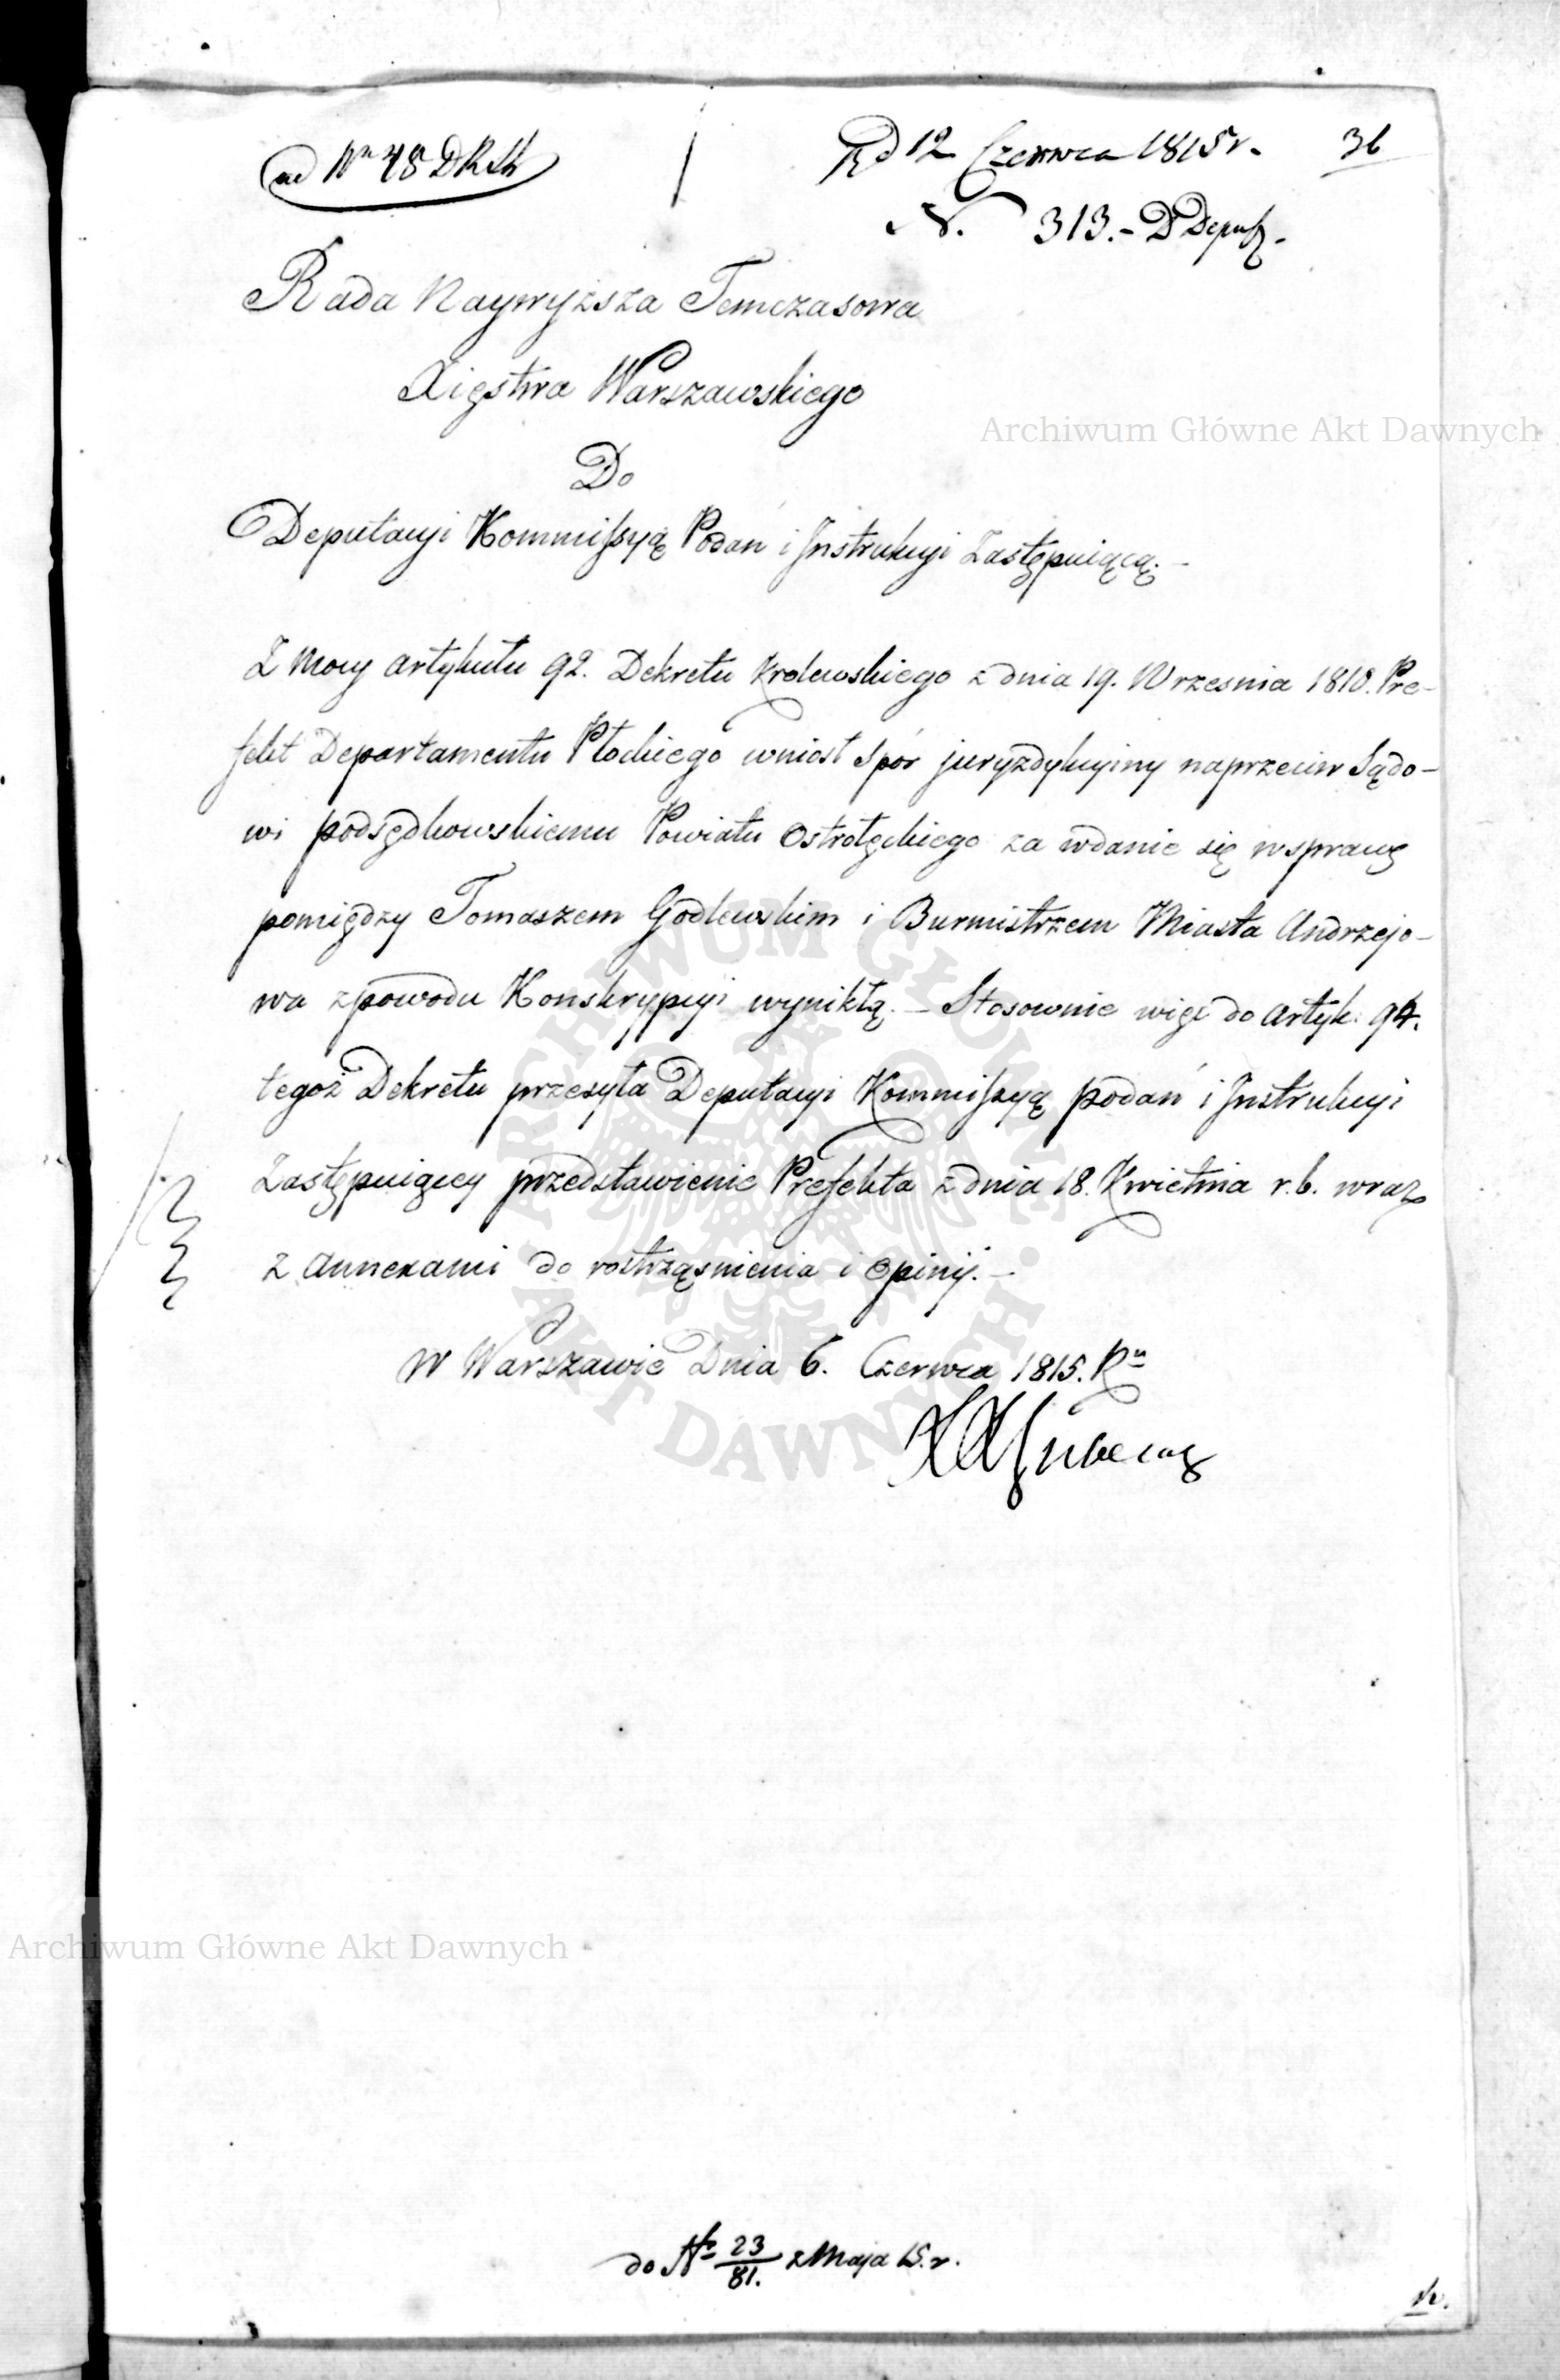 ad Nr 48 DRSt
Rd 12 Czerwca 1815 r. 36
N. 313.- D Deput.
Rada Naywyższa Temczasowa
Xięstwa Warszawskiego
Do
Deputacyi Kommissyą Podań i Instrukcyi Zastępuiącą.-
Z Mocy Artykułu 92. Dekretu Krolewskiego z dnia 19. Wrzesnia 1810. Pre-
fekt Departamentu Płockiego wniosł Spór juryzdykcyiny naprzeciw Sądo-
wi podsędkowskiemu Powiatu Ostrołęckiego za wdanie się w sprawę
pomiędzy Tomaszem Godlewskim i Burmistrzem Miasta Andrzejo-
wa z powodu Konskrypcyi wynikłą. - Stosownie więc do Artyk: 94.
tegoż Dekretu przesyła Deputacyi Kommissyą podań i Instrukcyi
Zastępuiącey przedstawienie Prefekta z dnia 18. Kwietnia r. b. wraz
z Annexami do roztrząsnienia i Opinij. -
W Warszawie Dnia 6. Czerwca 1815. Ru
do No 23/81. z Maja 15. r.
Archiwum Główne Akt Dawnych
Archiwum Główne Akt Dawnych
ARCHIWUM GŁÓWNE
AKT DAWNYCH